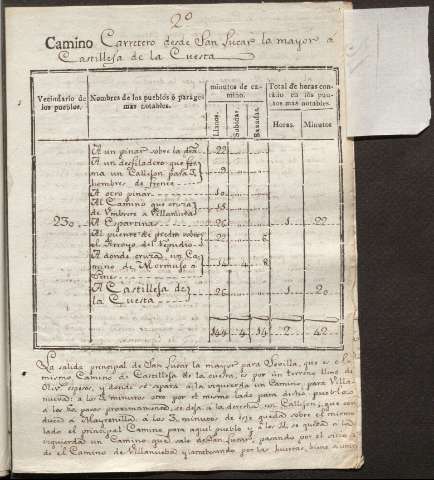 2º
Camino Carretero desde San Lucar la mayor a
Castilleja de la Cuesta
Vecindario de los pueblos.
Nombres de los pueblos ó parages mas notables.
minutos de camino.
Total de horas contado en los puntos mas notables.
Llanos. Subidas. Baxadas. Horas. Minutos
A un pinar sobre la dra 22
A un desfiladero que forma un Callejon para 3 hombres de frente 9
A otro pinar 10
Al Camino que cruza de Umbrete a Villanueva 15
230 A Espartina 26 1 22
Al puente de piedra sobre el Arroyo del Repudio 22 6
A donde cruza un Camino de Bormujo a 14 4 8
A Castilleja de la Cuesta 26 1 20
144 4 14 2 42
La salida principal de San Lucar la mayor para Sevilla, que es el
mismo Camino a Castilleja de la Cuesta, es por un terreno llano de
Olivar espeso, y donde se separa á la izquierda un Camino, para Villa-
nueva: a los minutos otro por el mismo lado para dicho pueblo
a los pasos proximamente, se deja a la derecha un Callejon, que con-
duce a Mayrenilla a los 3 minutos de este queda sobre el mismo
lado el principal Camino para aquel pueblo y á los se queda a la
izquierda un Camino que sale de San Lucar, pasando por el
de el Camino de Villanueba y por las huertas, viene a unir